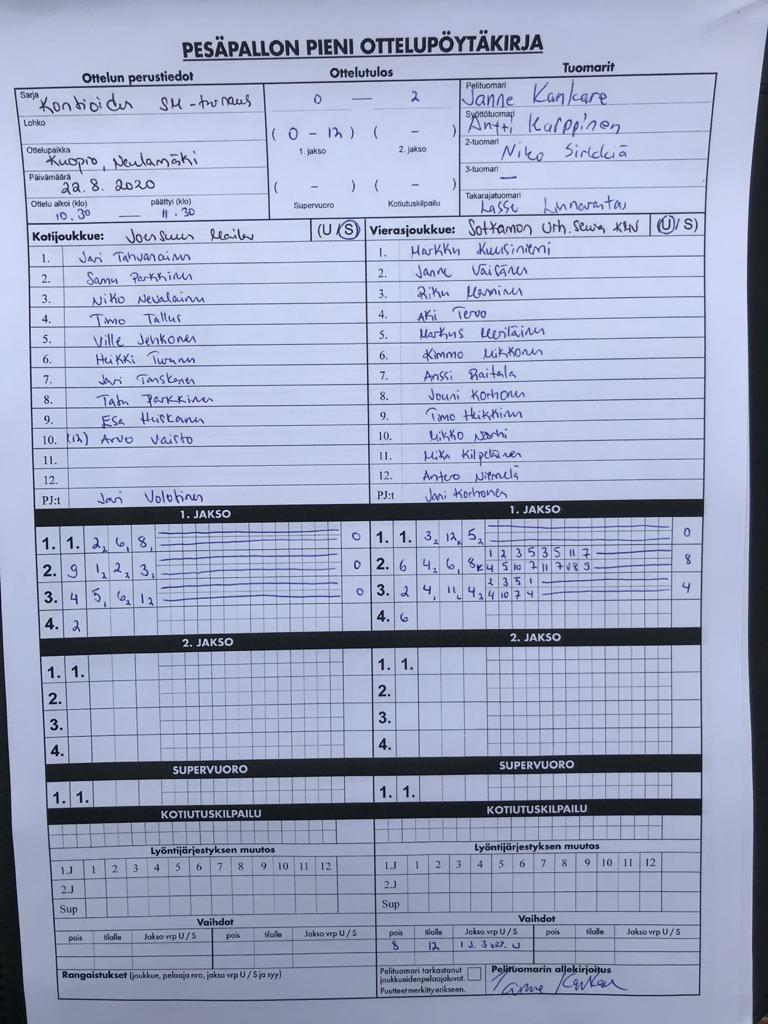 PESÄPALLON PIENI OTTELUPÖYTÄKIRJA
Ottelun perustiedot
Ottelutulos
Tuomarit
Sarja
SM-turnaus
0 — 2
Pelituomari
Janne Kankare
Lohko
(0 - 12) ( - )
1. jakso 2. jakso
Syöttötuomari
Antti Karppinen
Ottelupaikka
Kuopio, Neulamäki
2-tuomari
Niko Sirkkiä
Päivämäärä
22.8. 2020
( - ) ( - )
Supervuoro Kotiutuskilpailu
3-tuomari
—
Ottelu alkoi (klo) päättyi (klo)
10.30 — 11.30
Takarajatuomari
Lasse Linnavirta
Kotijoukkue: Joensuun Maila (U/S)
1. Jari Tahvanainen
2. Samu Parkkinen
3. Niko Nevalainen
4. Timo Tallus
5. Ville Jehkonen
6. Heikki Turunen
7. Jari Tanskanen
8. Tatu Parkkinen
9. Esa Heiskanen
10. (12) Arvo Vaisto
11.
12.
PJ:t Jari Volotinen
Vierasjoukkue: Sotkamon Urh. Seura (U/S)
1. Markku Kuusiniemi
2. Janne Väisänen
3. Riku Manninen
4. Aki Tervo
5. Markus Meriläinen
6. Kimmo Mikkonen
7. Anssi Raitala
8. Jouni Korhonen
9. Timo Heikkinen
10. Mikko Närhi
11. Mika Kilpeläinen
12. Antero Niemelä
PJ:t Jani Korhonen
1. JAKSO
1. 1. 2, 6, 8, 0
2. 9 1, 2, 3, 0
3. 4 5, 6, 12 0
4. 2
1. JAKSO
1. 1. 3, 12, 5, 0
2. 6 4, 6, 8 8
3. 2 4, 11, 4, 4
4. 6
2. JAKSO
1. 1.
2.
3.
4.
2. JAKSO
1. 1.
2.
3.
4.
SUPERVUORO
1. 1.
SUPERVUORO
1. 1.
KOTIUTUSKILPAILU
KOTIUTUSKILPAILU
Lyöntijärjestyksen muutos
1.J 1 2 3 4 5 6 7 8 9 10 11 12
2.J
Sup
Lyöntijärjestyksen muutos
1.J 1 2 3 4 5 6 7 8 9 10 11 12
2.J
Sup
Vaihdot
pois tilalle Jakso vrp U / S pois tilalle Jakso vrp U / S
Vaihdot
pois tilalle Jakso vrp U / S pois tilalle Jakso vrp U / S
8 12 1 J. 3 vrp. U
Rangaistukset (joukkue, pelaaja nro, jakso vrp U / S ja syy)
Pelituomari tarkastanut
joukkueiden pelaajaluvat.
Puutteet merkitty erikseen.
Pelituomarin allekirjoitus
Janne Kankare